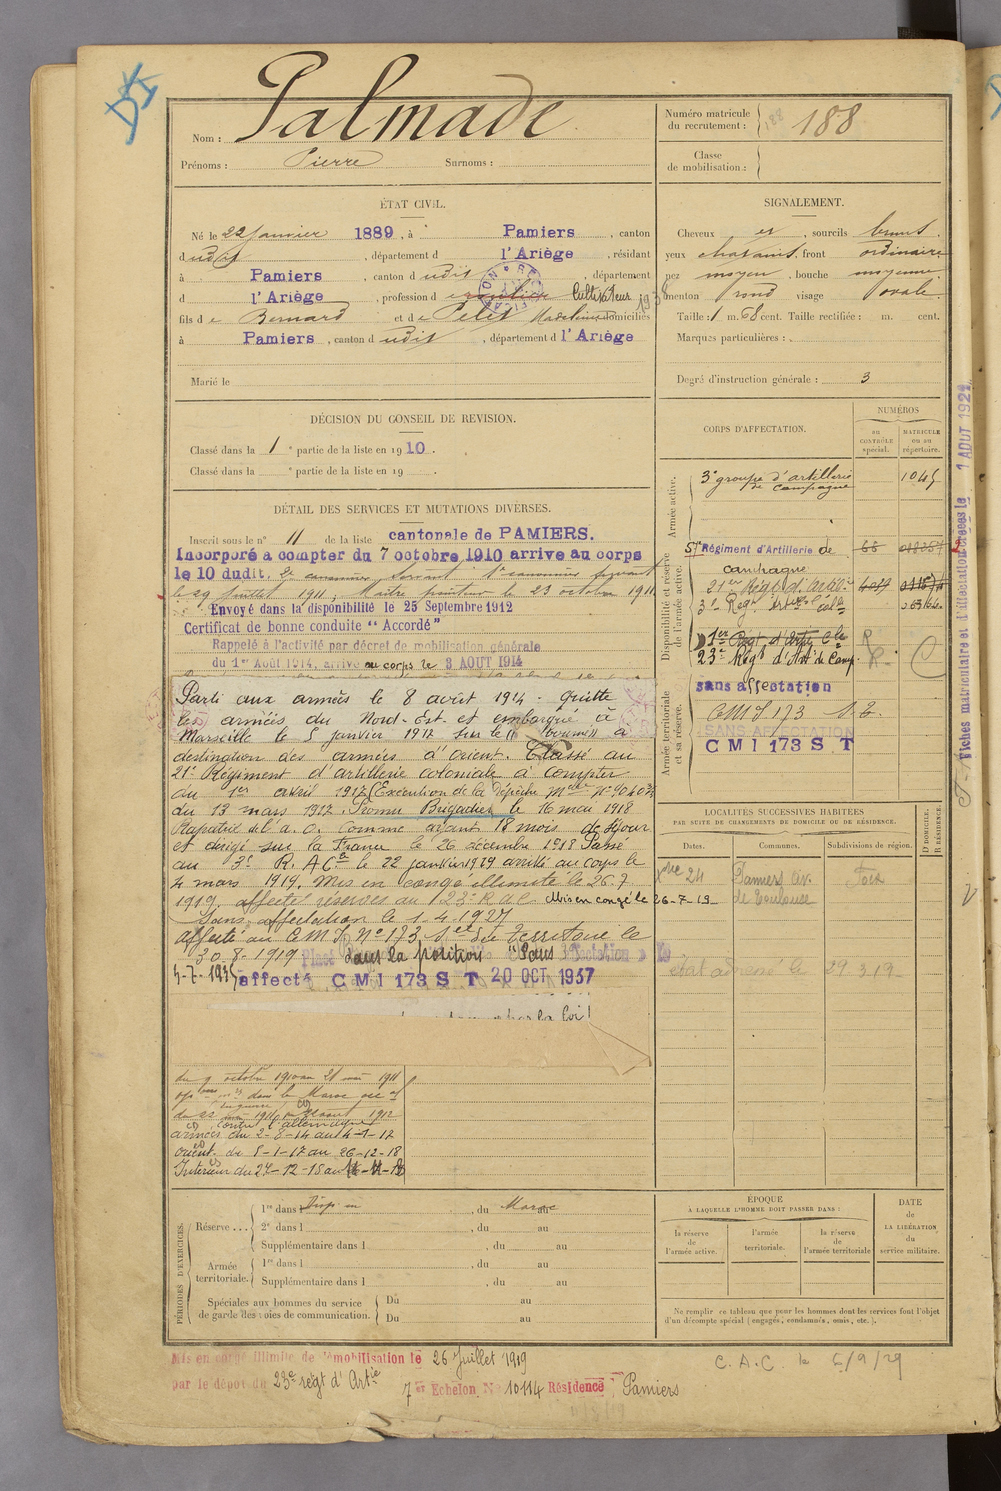 Nom : Palmade
Prénoms : Pierre Surnoms :
Numéro matricule du recrutement : 188
Classe de mobilisation :
ÉTAT CIVIL.
Né le 22 Janvier 1889, à Pamiers, canton
dudit, département d l'Ariège, résidant
à Pamiers, canton dudit, département
d l'Ariège, profession d Cultivateur
fils de Bernard et de Pelet Madeleine domiciliés
à Pamiers, canton dudit, département d l'Ariège
Marié le
SIGNALEMENT.
Cheveux et, sourcils bruns.
yeux chatains, front ordinaire
nez moyen, bouche moyenne
menton rond visage ovale.
Taille : 1 m. 68 cent. Taille rectifiée : m. cent.
Marques particulières :
Degré d'instruction générale : 3
DÉCISION DU CONSEIL DE REVISION.
Classé dans la 1e partie de la liste en 1910.
Classé dans la e partie de la liste en 19 .
DÉTAIL DES SERVICES ET MUTATIONS DIVERSES.
Inscrit sous le n° 11 de la liste cantonale de PAMIERS.
Incorporé à compter du 7 octobre 1910 arrivé au corps
le 10 dudit. 2e canonnier servant 1er canonnier
le 29 Juillet 1911, Maître pointeur le 23 octobre 1911
Envoyé dans la disponibilité le 25 Septembre 1912
Certificat de bonne conduite "Accordé"
Rappelé à l'activité par décret de mobilisation générale
du 1er Août 1914, arrivé au corps le 3 AOUT 1914
Parti aux armées le 8 août 1914 - quitte
les armées du Nord-Est et embarque à
Marseille le 5 janvier 1917 sur le à
destination des armées d'orient. Classé au
21e Régiment d'artillerie coloniale à compter
du 1er avril 1917 (Exécution de la Dépêche Melle N° 9040 3/8
du 13 mars 1917. Promu Brigadier le 16 mai 1918
Rapatrié de l'a. o. comme ayant 18 mois de séjour
et dirigé sur la France le 26 décembre 1918 Passé
au 3e R. A Cle le 22 janvier 1919 arrivé au corps le
4 mars 1919. Mis en congé illimité le 26.7.
1919. affecté réserves au 23e R a c Mis en congé le 26-7-19
Sans affectation le 1-4-1927
Affecté au C M I N° 173 Son Territoriale le
dans la position "Sans affectation"
affecté C M I 173 S T 20 OCT 1937
par la loi
du 9 octobre 1910 au 21 mai 1911
dans le Maroc
contre l'allemagne
armées du 2-8-14 au 4-1-17
orient du 5-1-17 au 26-12-18
Intérieur du 27-12-18 au
CORPS D'AFFECTATION.
NUMÉROS
au CONTRÔLE spécial.
MATRICULE ou au répertoire.
Armée active.
3e groupe d'artillerie de campagne 1045
Disponibilité et réserve de l'armée active.
57e Régiment d'Artillerie de campagne 68
21e Régt d'Artil.
3e Reg. Artie Cole
1er Regt d'Artie Cle R
23e Régt d'Art de Camp. R
sans affectation
Armée territoriale et sa réserve.
CMI 173 S.T.
SANS AFFECTATION
CMI 173 S T
LOCALITÉS SUCCESSIVES HABITÉES
PAR SUITE DE CHANGEMENTS DE DOMICILE OU DE RÉSIDENCE.
Dates. Communes. Subdivisions de région. D DOMICILE. R RÉSIDENCE.
Xbre 24 Pamiers av. de Toulouse Foix
état adressé le 29.3.19
PÉRIODES D'EXERCICES.
Réserve ... 1re dans l , du Maroc au
2e dans l , du au
Supplémentaire dans l , du au
Armée territoriale. 1re dans l , du au
Supplémentaire dans l , du au
Spéciales aux hommes du service de garde des voies de communication. Du au
Du au
ÉPOQUE
À LAQUELLE L'HOMME DOIT PASSER DANS :
la réserve de l'armée active.
l'armée territoriale.
la réserve de l'armée territoriale
DATE de LA LIBÉRATION du service militaire.
Ne remplir ce tableau que pour les hommes dont les services font l'objet
d'un décompte spécial (engagés, condamnés, omis, etc.).
Mis en congé illimité de démobilisation le 26 Juillet 1919
par le dépôt du 23e régt d'Artie
7er Echelon N° 10114 Résidence : Pamiers
C.A.C. le 5/9/29
Fiches matriculaire et d'affectation 1 AOUT 1921.